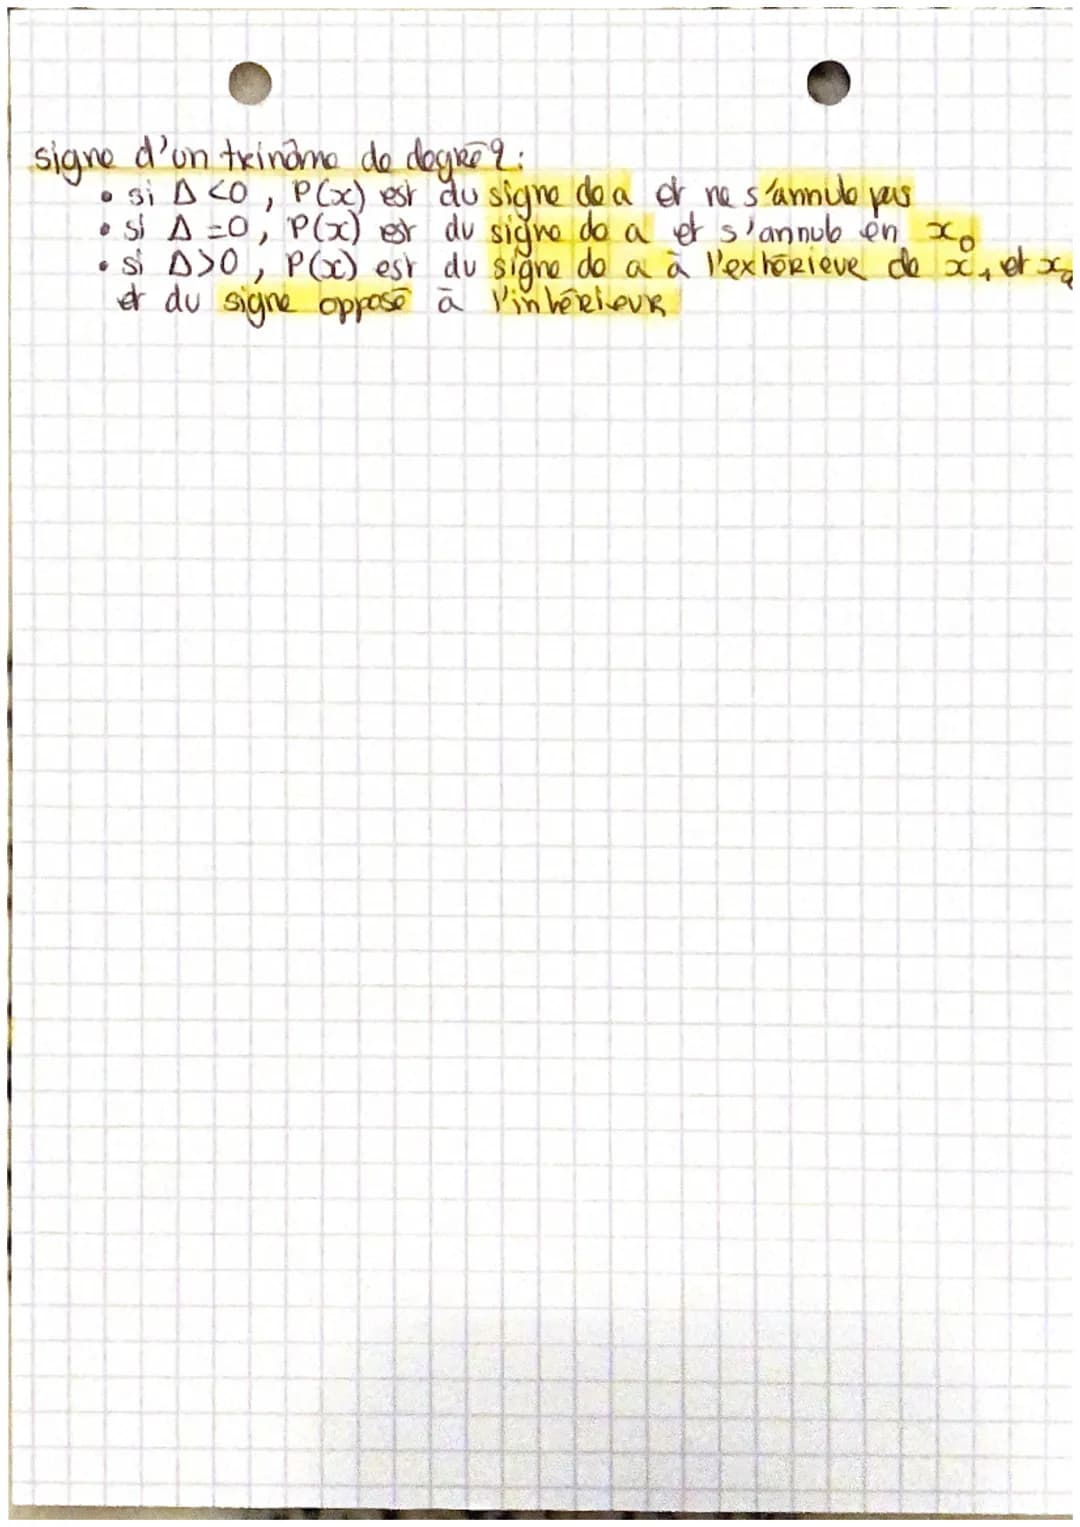 signe d'un trinôme de degré 2:
• si Δ <0, P(x) est du signe de a et ne s'annule pas
• si Δ =0, P(x) est du signe de a et s'annule en x₀
• si Δ>0, P(x) est du signe de a à l'extérieur de x₁ et x₂
et du signe opposé à l'intérieur